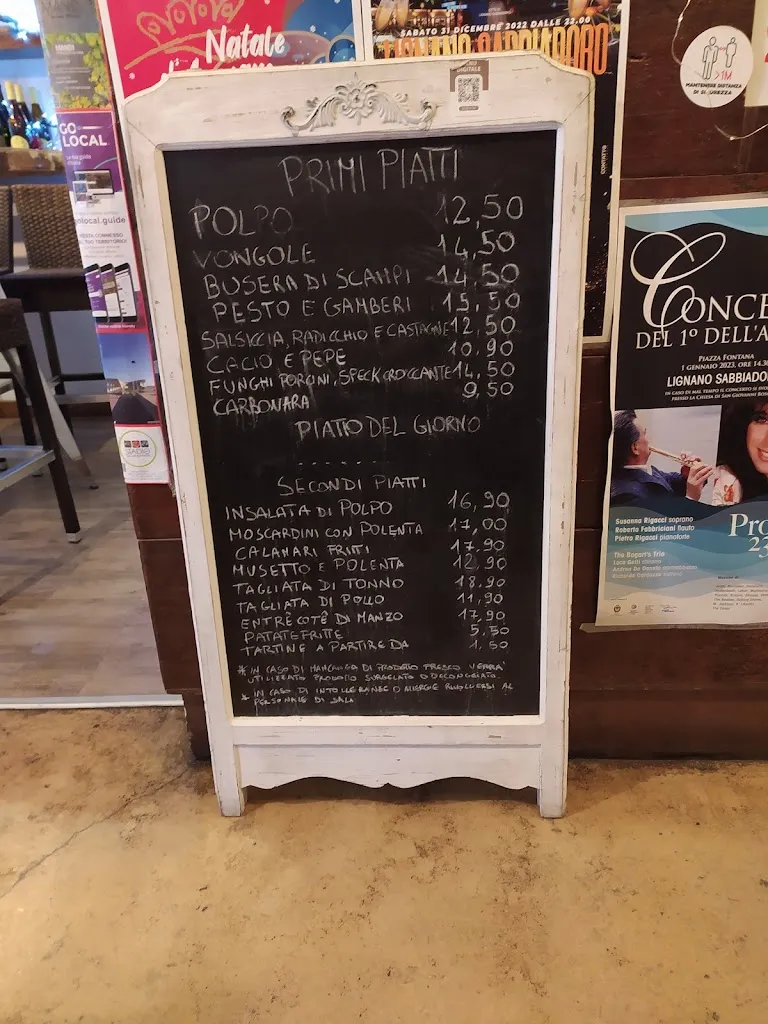 Natale
SABATO 31 DICEMBRE 2022 DALLE 22.00
LIGNANO SABBIADORO
MENU
DIGITALE
>1M
MANTENERE DISTANZA
DI SICUREZZA
GO
LOCAL
PRIMI PIATTI
POLPO 12,50
VONGOLE 14,50
BUSERA DI SCAMPI 14,50
PESTO E GAMBERI 15,50
SALSICCIA, RADICCHIO E CASTAGNE 12,50
CACIO E PEPE 10,90
FUNGHI PORCINI, SPECK CROCCANTE 14,50
CARBONARA 9,50
PIATTO DEL GIORNO
- - - - - -
SECONDI PIATTI
INSALATA DI POLPO 16,90
MOSCARDINI CON POLENTA 17,00
CALAMARI FRITTI 17,90
MUSETTO E POLENTA 12,90
TAGLIATA DI TONNO 18,90
TAGLIATA DI POLLO 11,90
ENTRECOTÊ DI MANZO 17,90
PATATE FRITTE 5,50
TARTINE A PARTIRE DA 1,50
* IN CASO DI MANCANZA DI PRODOTTO FRESCO VERRA'
UTILIZZATO PRODOTTO SURGELATO O DECONGELATO.
* IN CASO DI INTOLLERANZE O ALLERGIE RIVOLGERSI AL
PERSONALE DI SALA
CONCE
DEL 1º DELL'A
PIAZZA FONTANA
1 GENNAIO 2023, ORE 14.30
LIGNANO SABBIADO
IN CASO DI MAL TEMPO IL CONCERTO SI
PRESSO LA CHIESA DI SAN GIOVANNI BOS
Susanna Rigacci soprano
Roberto Fabbriciani flauto
Pietro Rigacci pianoforte
The Bogart's Trio
Pro
23